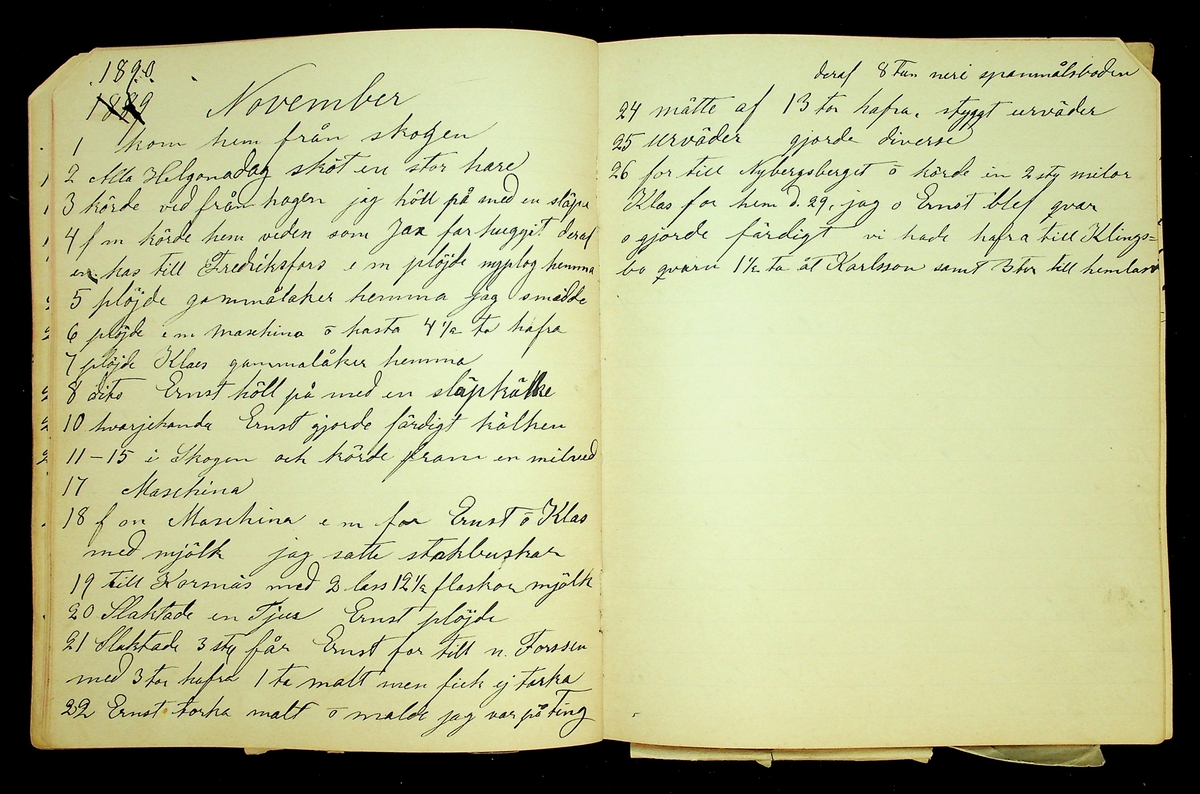 1890.
1889 November
1 kom hem från skogen
2 Alla Helgonadag sköt en stor hare
3 körde ved från hagen jag höll på med en släpa
4 f m körde hem veden som Jax farhuggit deraf
en kas till Fredriksfors e m plöjde nyplog hemma
5 plöjde gammålaker hemma jag smidde
6 plöjde e m Maschina o kasta 4 1/2 ta hafra
7 plöjde Klaes gammalåker hemma
8 dito Ernst höll på med en släpkälke
10 hvarjehanda Ernst gjorde färdigt kälken
11-15 i Skogen och körde fram en milved
17 Maschina
18 f m Maschina e m for Ernst o Klas
med mjölk jag satte stakbuskar
19 till Kornäs med 2 lass 12 1/2 flaskor mjölk
20 Slaktade en Tjur Ernst plöjde
21 Slaktade 3 sty får Ernst for till n. Forssen
med 3 tor hafra 1 ta malt men fick ej torka
22 Ernst torka malt o malde jag var på Ting
deraf 8 tun neri spanmålsboden
24 mätte af 13 tor hafra, styggt urväder
25 Urväder gjorde diverse
26 for till Nybergsberget o körde in 2 sty milor
Klas for hem d. 29, jag o Ernst blef qvar
o gjorde färdigt vi hade hafra till Klings=
bo qvarn 1 1/2 ta åt Karlsson samt 3 tor till hemlast